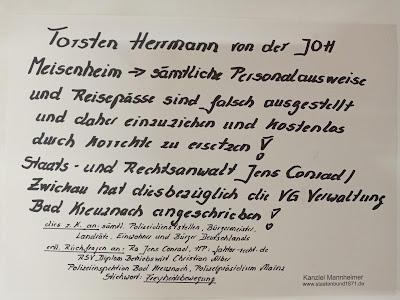 Torsten Herrmann von der JOH
Meisenheim → sämtliche Personalausweise
und Reisepässe sind falsch ausgestellt
und daher einzuziehen und kostenlos
durch korrekte zu ersetzen !
Staats- und Rechtsanwalt Jens Conrad /
Zwickau hat diesbezüglich die VG Verwaltung
Bad Kreuznach angeschrieben !
dies z. K. an: sämtl. Polizeidienststellen, Bürgermeister,
Landräte, Einwohner und Bürger Deutschlands
evtl. Rückfragen an: Ra Jens Conrad, HP. faktor-recht.de
RSV Diplom Betriebswirt Christian Alber
Polizeiinspektion Bad Kreuznach, Polizeipräsidium Mainz
Stichwort: Freyheitsbewegung
Kanzlei Mannheimer
www.staatenbund1871.de